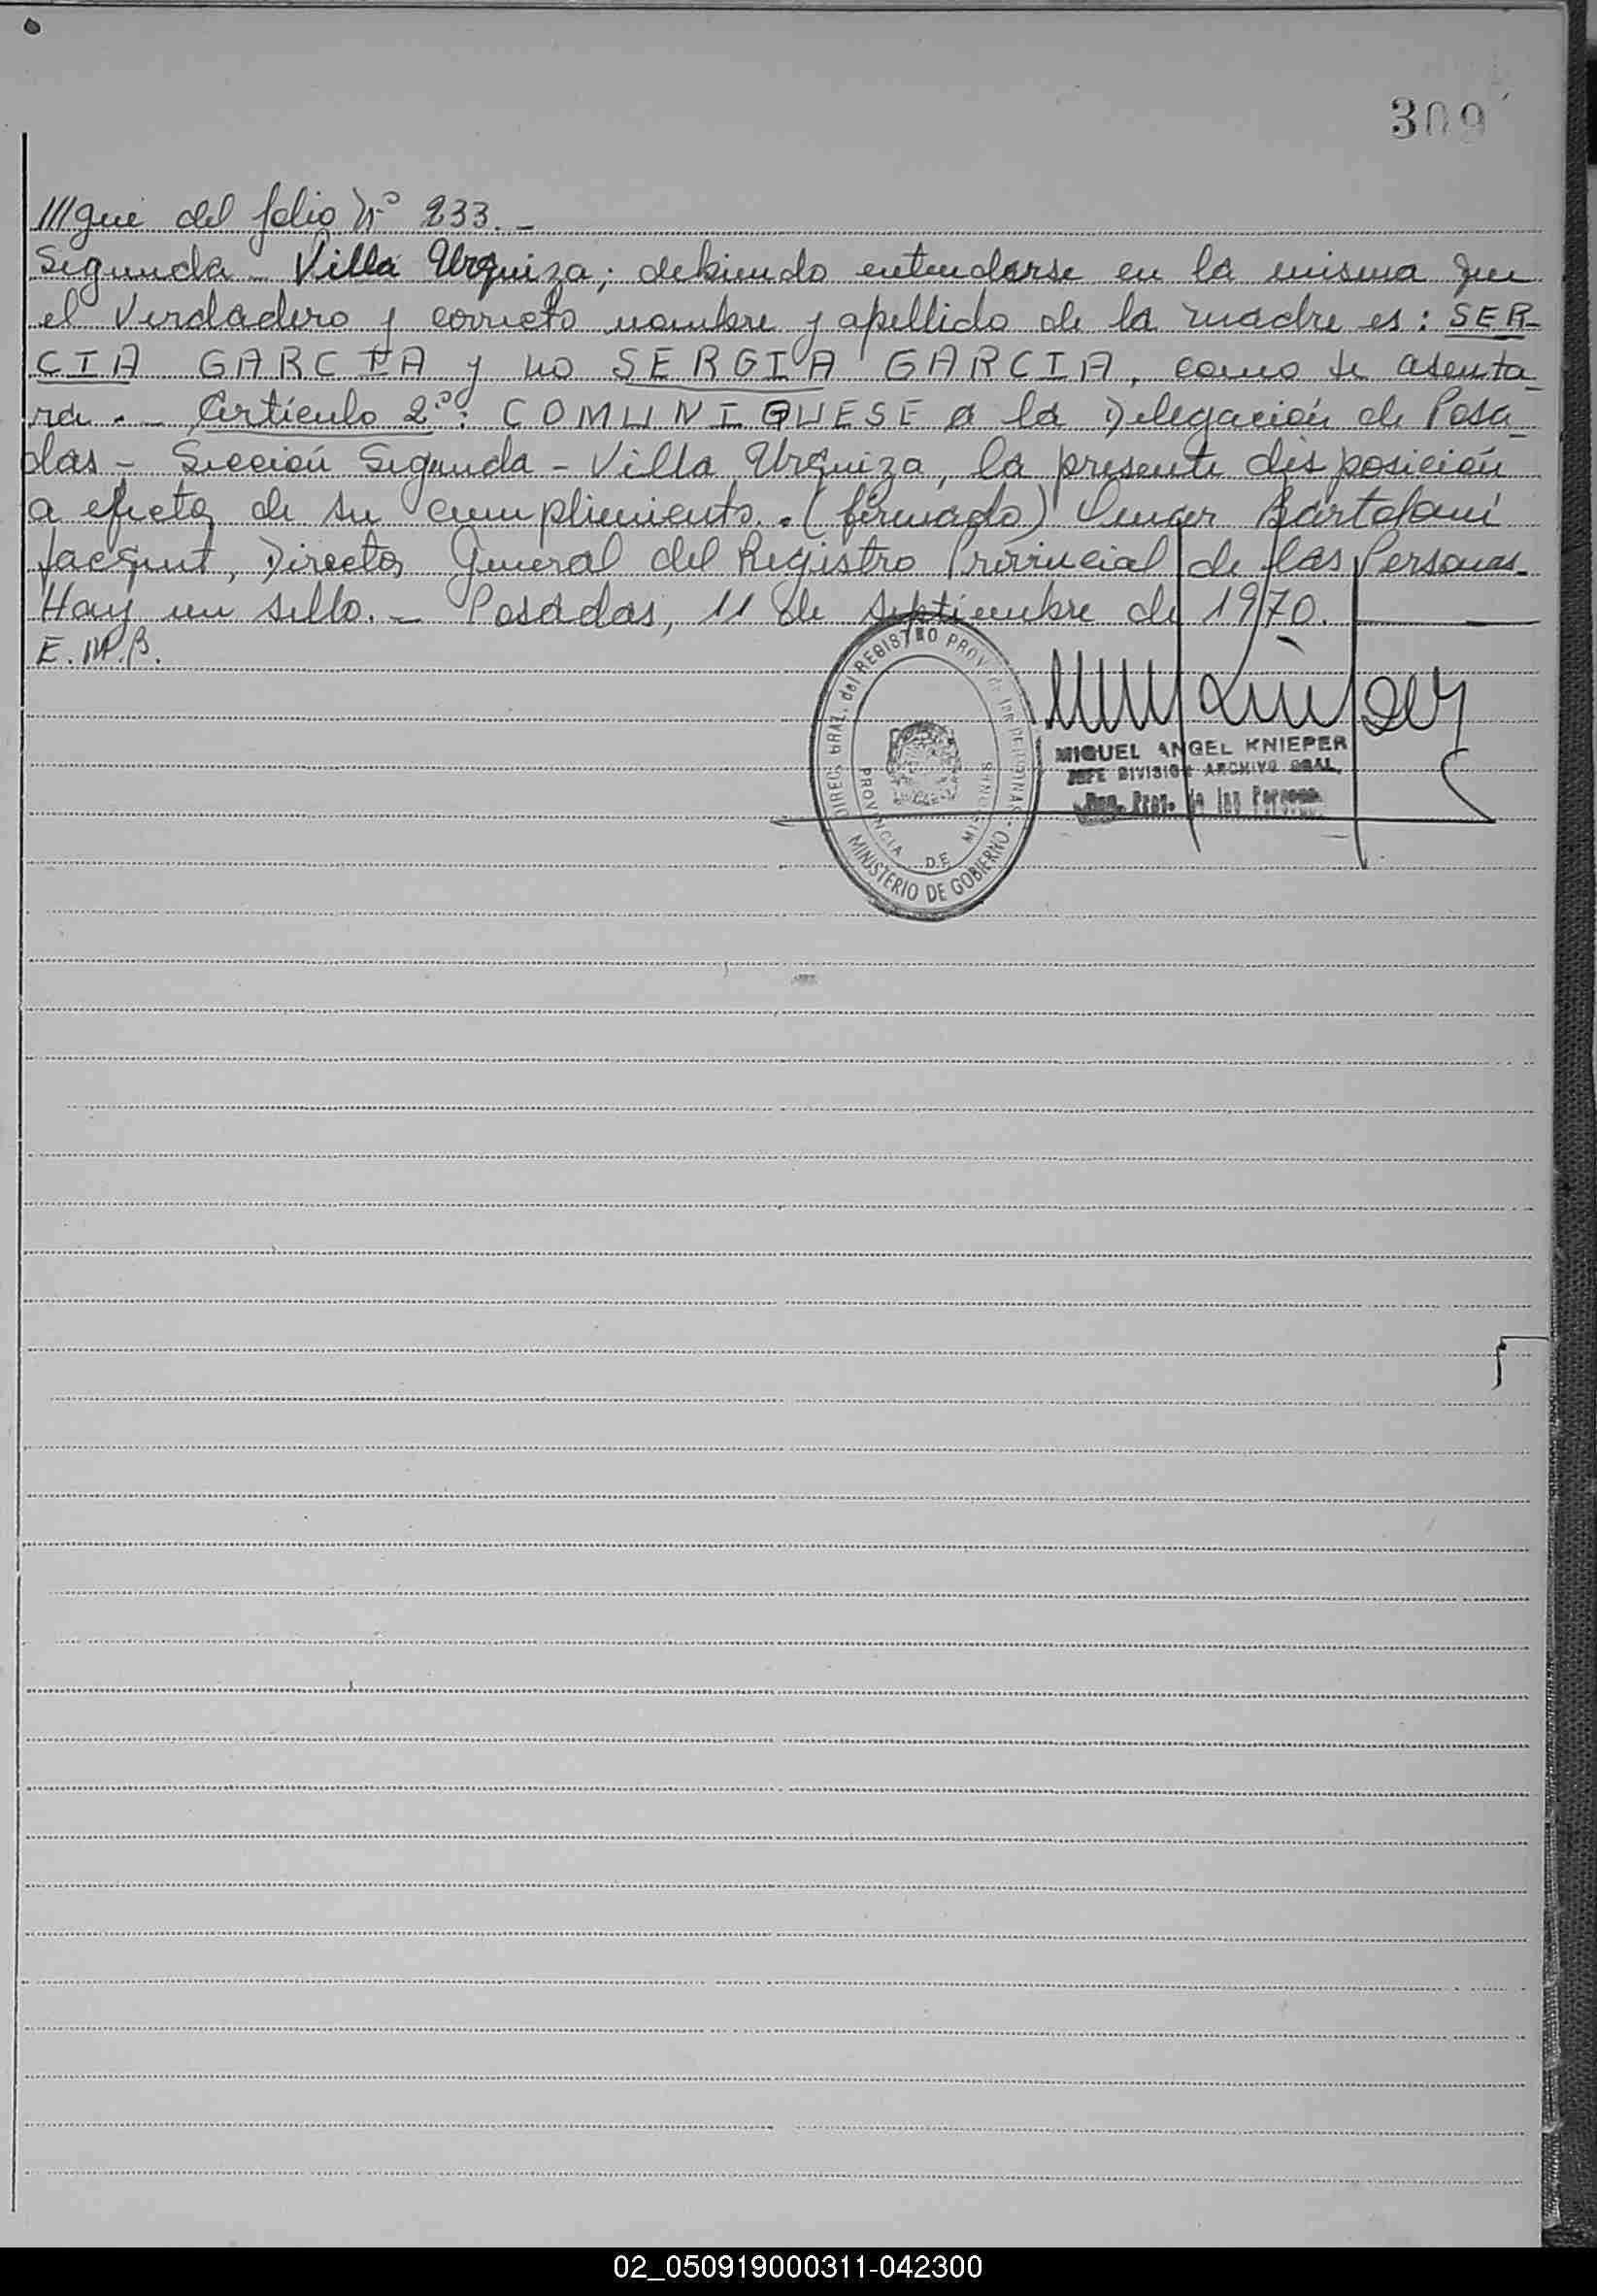 309
///gue del folio Nº 233.-
Segunda - Villa Urquiza; debiendo entenderse en la misma que
el verdadero y correcto nombre y apellido de la madre es: SER-
CIA GARCIA y no SERGIA GARCIA, como se asenta-
ra.- Artículo 2º: COMUNIQUESE a la Delegación de Posa-
das - Sección Segunda - Villa Urquiza, la presente disposición
a efectos de su cumplimiento.- (firmado) Bartolomé
Director General del Registro Provincial de las Personas.
Hay un sello.- Posadas, 11 de septiembre de 1970.
E.M.B.
DIREC. GRAL. del REGISTRO PROV. de las PERSONAS
PROVINCIA DE MISIONES
MINISTERIO DE GOBIERNO
MIGUEL ANGEL KNIEPER
JEFE DIVISION ARCHIVO GRAL.
Reg. Prov. de las Personas
02_050919000311-042300